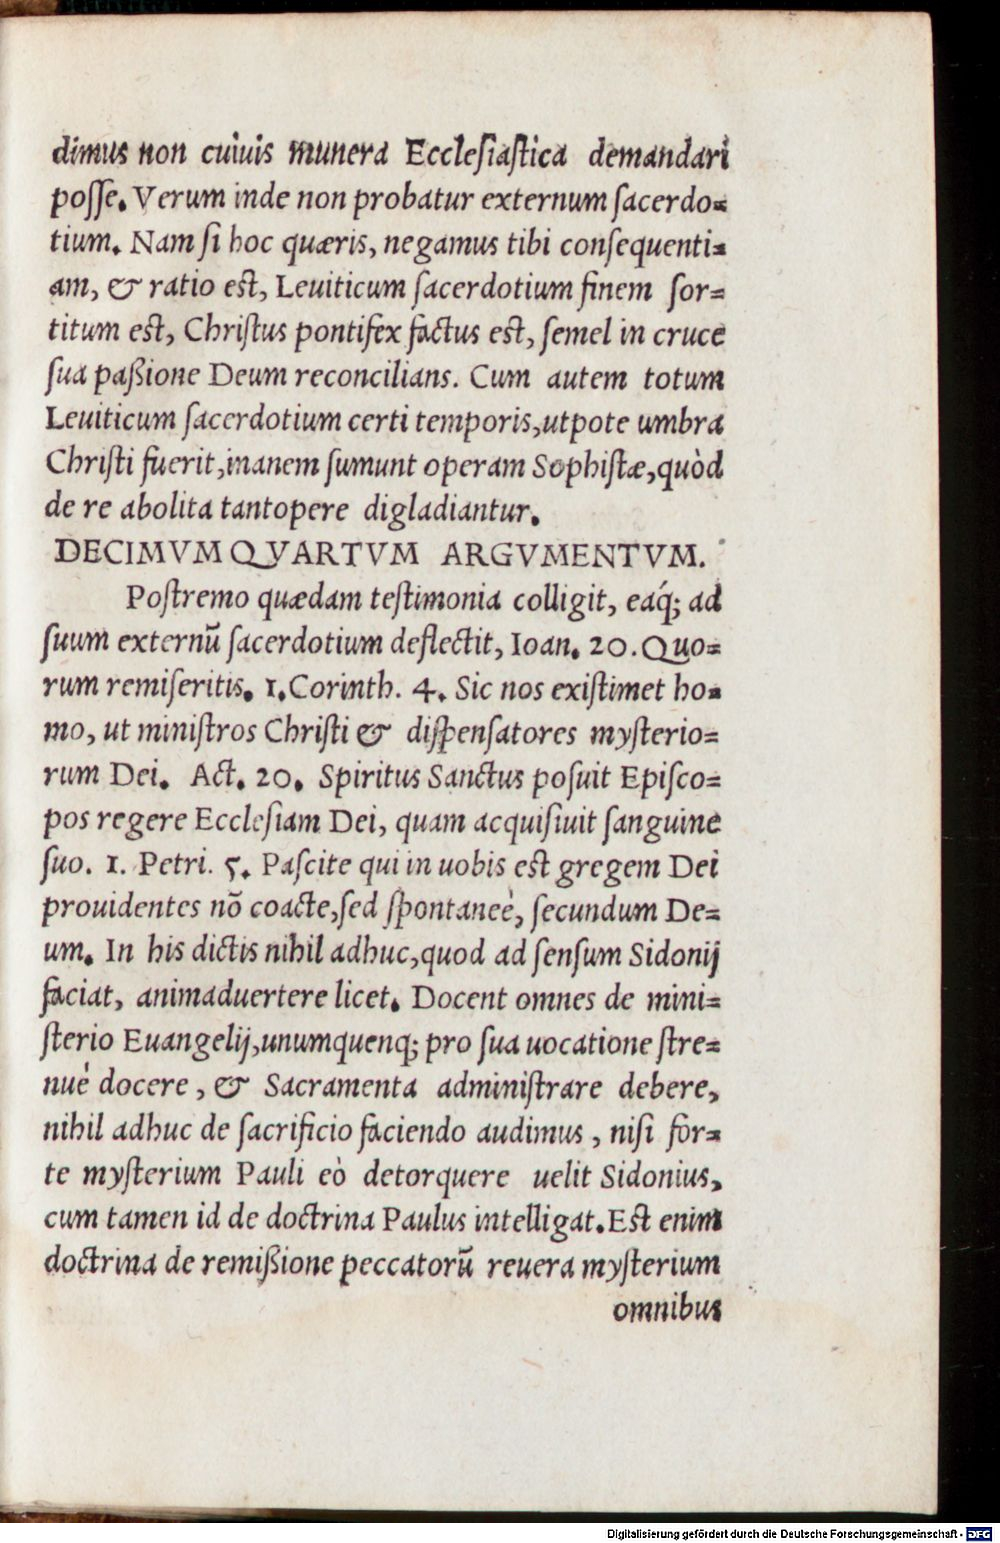 dimus non cuiuis munera Ecclesiastica demandari
posse. Verum inde non probatur externum sacerdo=
tium. Nam si hoc quæris, negamus tibi consequenti=
am, & ratio est, Leuiticum sacerdotium finem sor=
titum est, Christus pontifex factus est, semel in cruce
sua paßione Deum reconcilians. Cum autem totum
Leuiticum sacerdotium certi temporis,utpote umbra
Christi fuerit,inanem sumunt operam Sophistæ,quòd
de re abolita tantopere digladiantur.
DECIMVM QVARTVM ARGVMENTVM.
Postremo quædam testimonia colligit, eaq́; ad
suum externũ sacerdotium deflectit, Ioan. 20. Quo=
rum remiseritis. 1.Corinth. 4. Sic nos existimet ho=
mo, ut ministros Christi & dispensatores mysterio=
rum Dei. Act. 20. Spiritus Sanctus posuit Episco=
pos regere Ecclesiam Dei, quam acquisiuit sanguine
suo. 1. Petri. 5. Pascite qui in uobis est gregem Dei
prouidentes nõ coacte,sed spontaneè, secundum De=
um. In his dictis nihil adhuc,quod ad sensum Sidonij
faciat, animaduertere licet. Docent omnes de mini=
sterio Euangelij,unumquenq; pro sua uocatione stre=
nuè docere, & Sacramenta administrare debere,
nihil adhuc de sacrificio faciendo audimus, nisi for=
te mysterium Pauli eò detorquere uelit Sidonius,
cum tamen id de doctrina Paulus intelligat. Est enim
doctrina de remißione peccatorũ reuera mysterium
omnibus
Digitalisierung gefördert durch die Deutsche Forschungsgemeinschaft - DFG